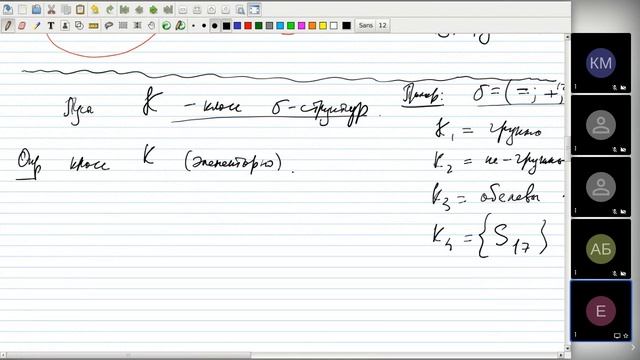 Sans 12
Пусть K – класс σ-структур.
Опр класс K (элементарно).
Пример: σ = (=; +,
K₁ = группы
K₂ = не-группы
K₃ = абелевы
K₄ = {S₁₇}
КМ
АБ
Е